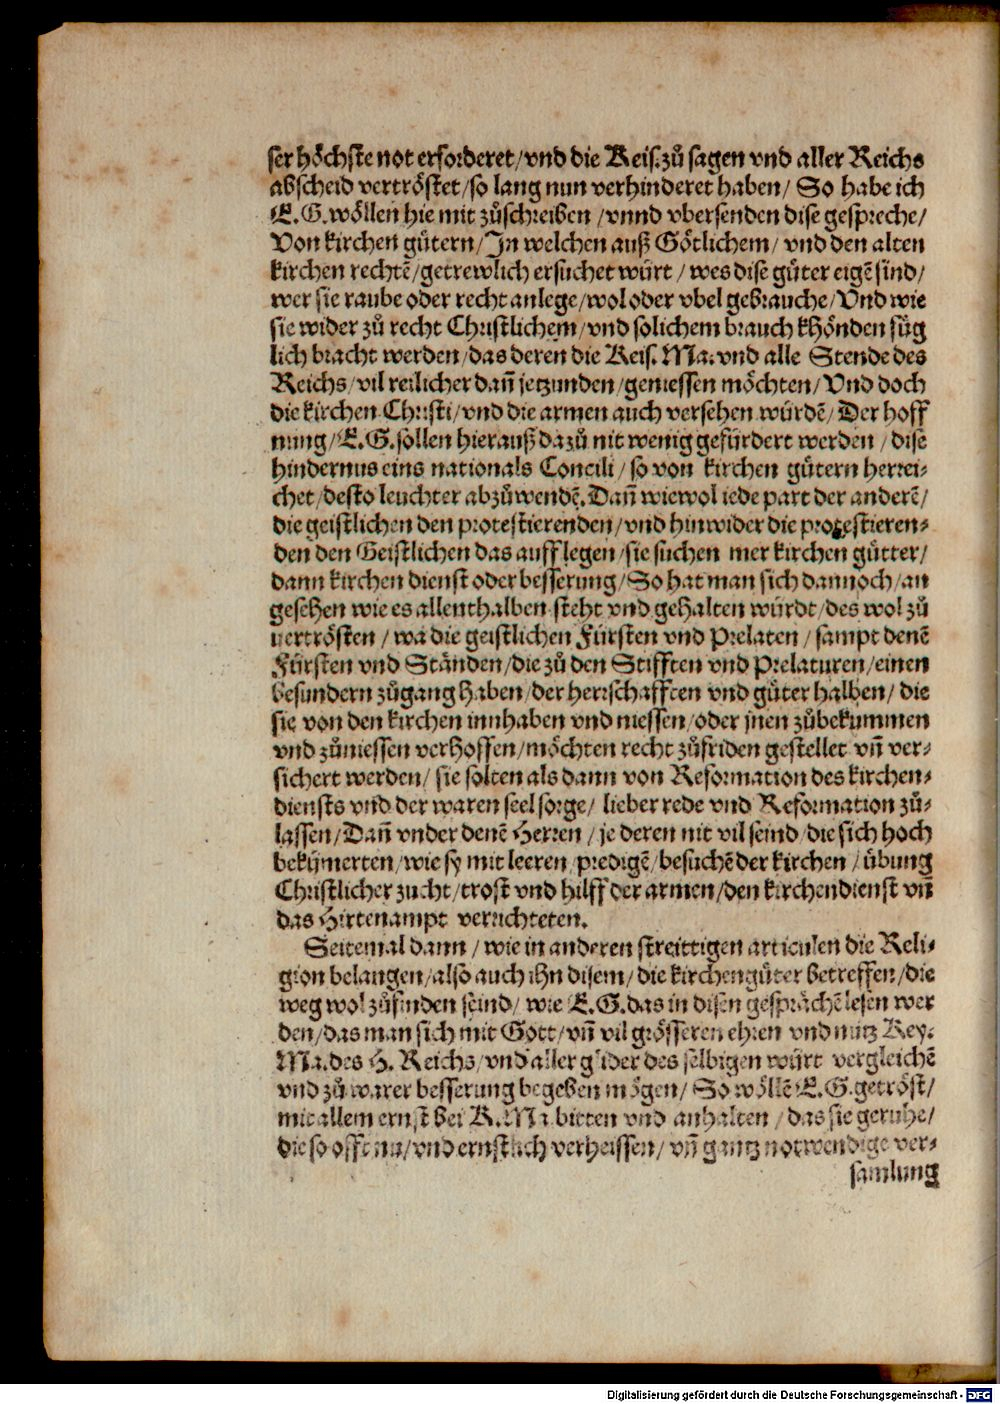 ser höchste not erforderet/vnd die Keis. zů sagen vnd aller Reichs
abscheid vertröstet/so lang nun verhinderet haben/ So habe ich
E. G. wöllen hie mit zůschreiben /vnnd vbersenden dise gespreche/
Von kirchen gütern/Jn welchen auß Götlichem/ vnd den alten
kirchen rechtē/getrewlich ersuchet würt / wes dise güter eigē sind/
wer sie raube oder recht anlege/wol oder vbel gebrauche/Vnd wie
sie wider zů recht Christlichem/vnd solichem brauch khönden füg
lich bracht werden/das deren die Keis. Ma. vnd alle Stende des
Reichs/vil reilicher dañ jetzunden/geniessen möchten/Vnd doch
die kirchen Christi/vnd die armen auch versehen würdē/Der hoff
nung/E. G. sollen hierauß dazů nit wenig gefürdert werden /dise
hindernus eins nationals Concili/so von kirchen gütern herrei-
chet/desto leuchter abzůwendē. Dañ wiewol iede part der anderē/
die geistlichen den protestierenden/vnd hinwider die protestieren-
den den Geistlichen das aufflegen/sie suchen mer kirchen gütter/
dann kirchen dienst oder besserung/So hat man sich dannoch/an
gesehen wie es allenthalben steht vnd gehalten würdt/des wol zů
vertrösten /wa die geistlichen Fürsten vnd Prelaten/sampt denē
Fürsten vnd Ständen/die zů den Stifften vnd Prelaturen/einen
besundern zůgang haben/der herrschafften vnd güter halben/die
sie von den kirchen innhaben vnd niessen/oder jnen zůbekummen
vnd zůniessen verhoffen/möchten recht zůfriden gestellet vñ ver-
sichert werden/ sie solten als dann von Reformation des kirchen-
diensts vnd der waren seel sorge/ lieber rede vnd Reformation zů-
lassen/Dañ vnder denē Herren / je deren nit vil seind/die sich hoch
bekümerten/wie sy mit leeren/predigē/besuchē der kirchen /übung
Christlicher zucht/trost vnd hilff der armen/den kirchendienst vñ
das Hirtenampt verrichteten.
Seitemal dann /wie in anderen streittigen articulen die Reli-
gion belangen/also auch ihn disem/die kirchengüter betreffen/die
weg wol zůfinden seind/ wie E. G. das in disen gesprächē lesen wer
den/das man sich mit Gott/vñ vil grösseren ehren vnd nutz Key.
Ma. des H. Reichs/vnd aller glider des selbigen würt vergleichē
vnd zů warer besserung begeben mögen/ So wöllē E. G. getröst/
mit allem ernst bei K. Ma. bitten vnd anhalten /das sie geruhe/
die so offt nu/vnd ernstlich verheissen/ vñ gantz notwendige ver-
samlung
Digitalisierung gefördert durch die Deutsche Forschungsgemeinschaft - DFG